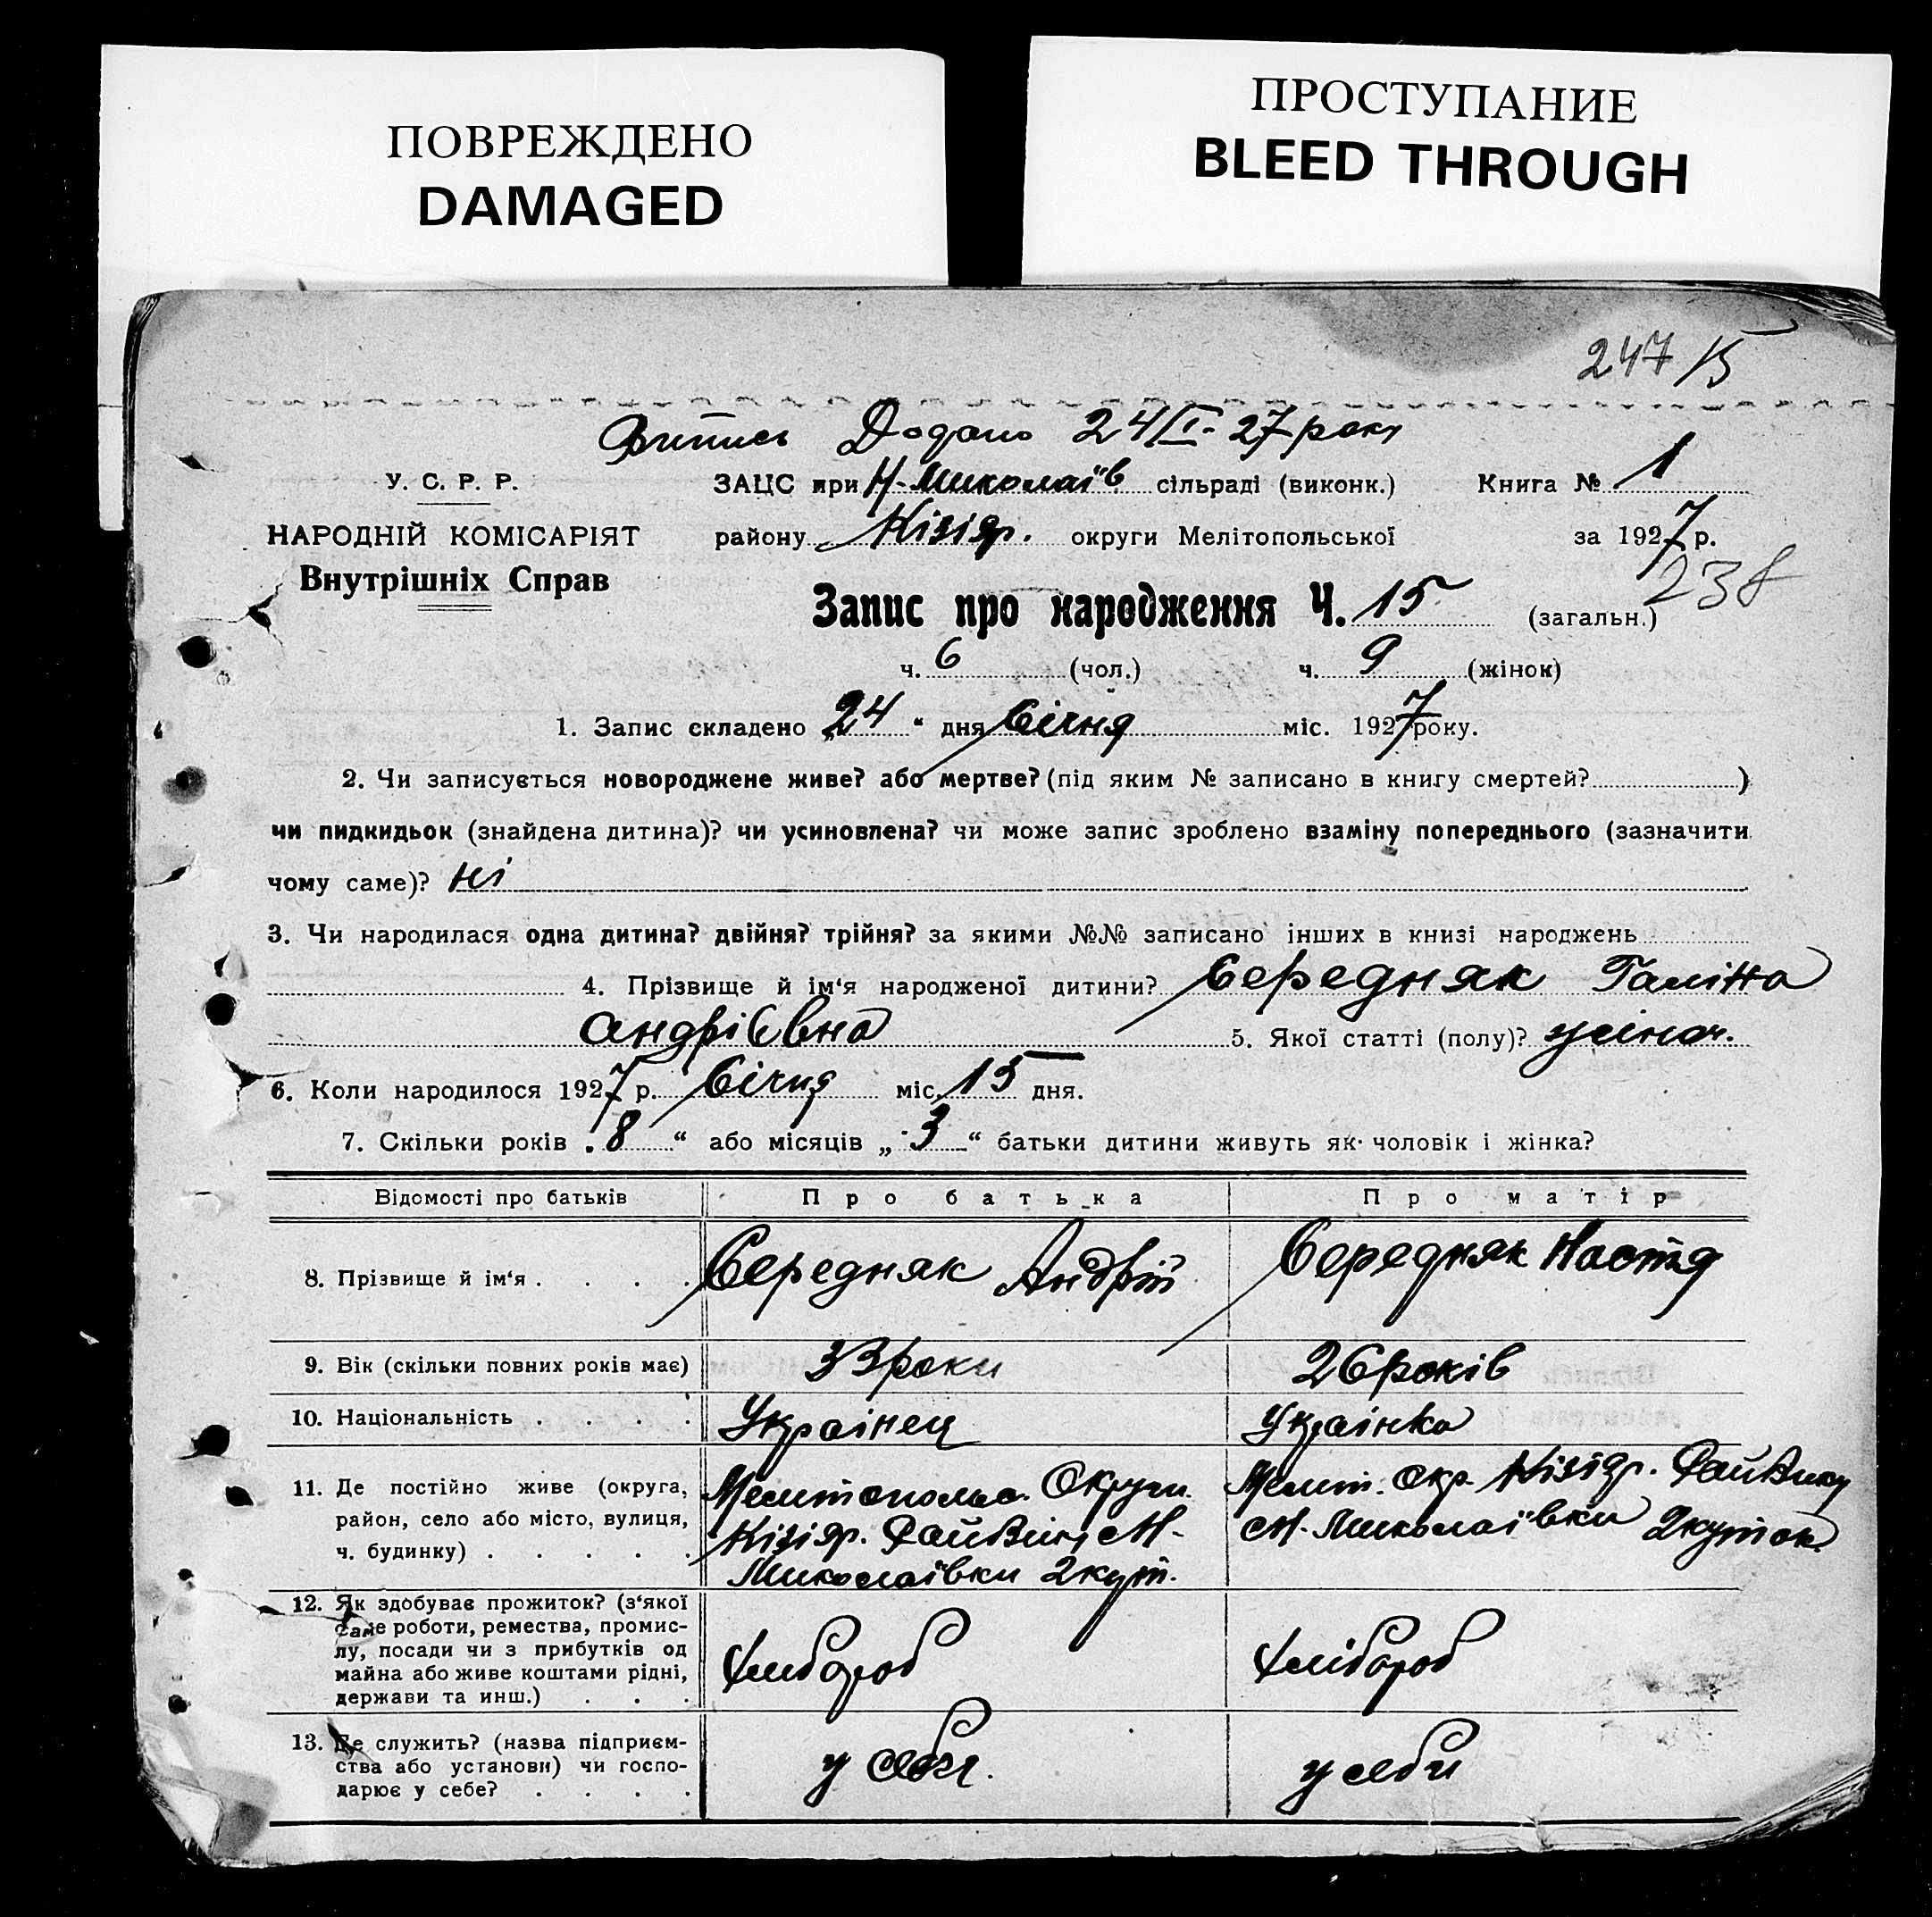 ПОВРЕЖДЕНО
DAMAGED
ПРОСТУПАНИЕ
BLEED THROUGH
247/15
Витпись Додано 24/I-27 року
У. С. Р. Р.
ЗАЦС при Н-Миколаїв сільраді (виконк.) Книга № 1
НАРОДНІЙ КОМІСАРІЯТ
району Кізіяр. округи Мелітопольської за 1927 р.
Внутрішніх Справ
238
Запис про народження Ч. 15 (загальн.)
ч. 6 (чол.) ч. 9 (жінок)
1. Запис складено „24" дня Січня міс. 1927 року.
2. Чи записується новороджене живе? або мертве? (під яким № записано в книгу смертей? )
чи пидкидьок (знайдена дитина)? чи усиновлена? чи може запис зроблено взаміну попереднього (зазначити
чому саме)? ні
3. Чи народилася одна дитина? двійня? трійня? за якими №№ записано інших в книзі народжень
4. Прізвище й ім'я народженої дитини? Середняк Галіна
Андрієвна 5. Якої статті (полу)? жіноч.
6. Коли народилося 1927 р. Січня міс. 15 дня.
7. Скільки років „8" або місяців „3" батьки дитини живуть як чоловік і жінка?
Відомості про батьків Про батька Про матір
8. Прізвище й ім'я . . . . Середняк Андрій Середняк Настя
9. Вік (скільки повних років має) 33 роки 26 років
10. Національність . . . . Украінец Украінка
11. Де постійно живе (округа,
район, село або місто, вулиця,
ч. будинку) . . . . .
Мелитопольс. Округи
Кізіяр. Райвику Н-
Миколаївки 2 кут.
Мелит. Окр. Кізіяр. Райвику
Н-Миколаївки 2 куток
12. Як здобуває прожиток? (з'якої
саме роботи, ремества, промис-
лу, посади чи з прибутків од
майна або живе коштами рідні,
держави та инш.) . . .
Хлибороб
Хлібороб
13. Де служить? (назва підприєм-
ства або установи) чи госпо-
дарює у себе? . . . .
у себи.
у себи